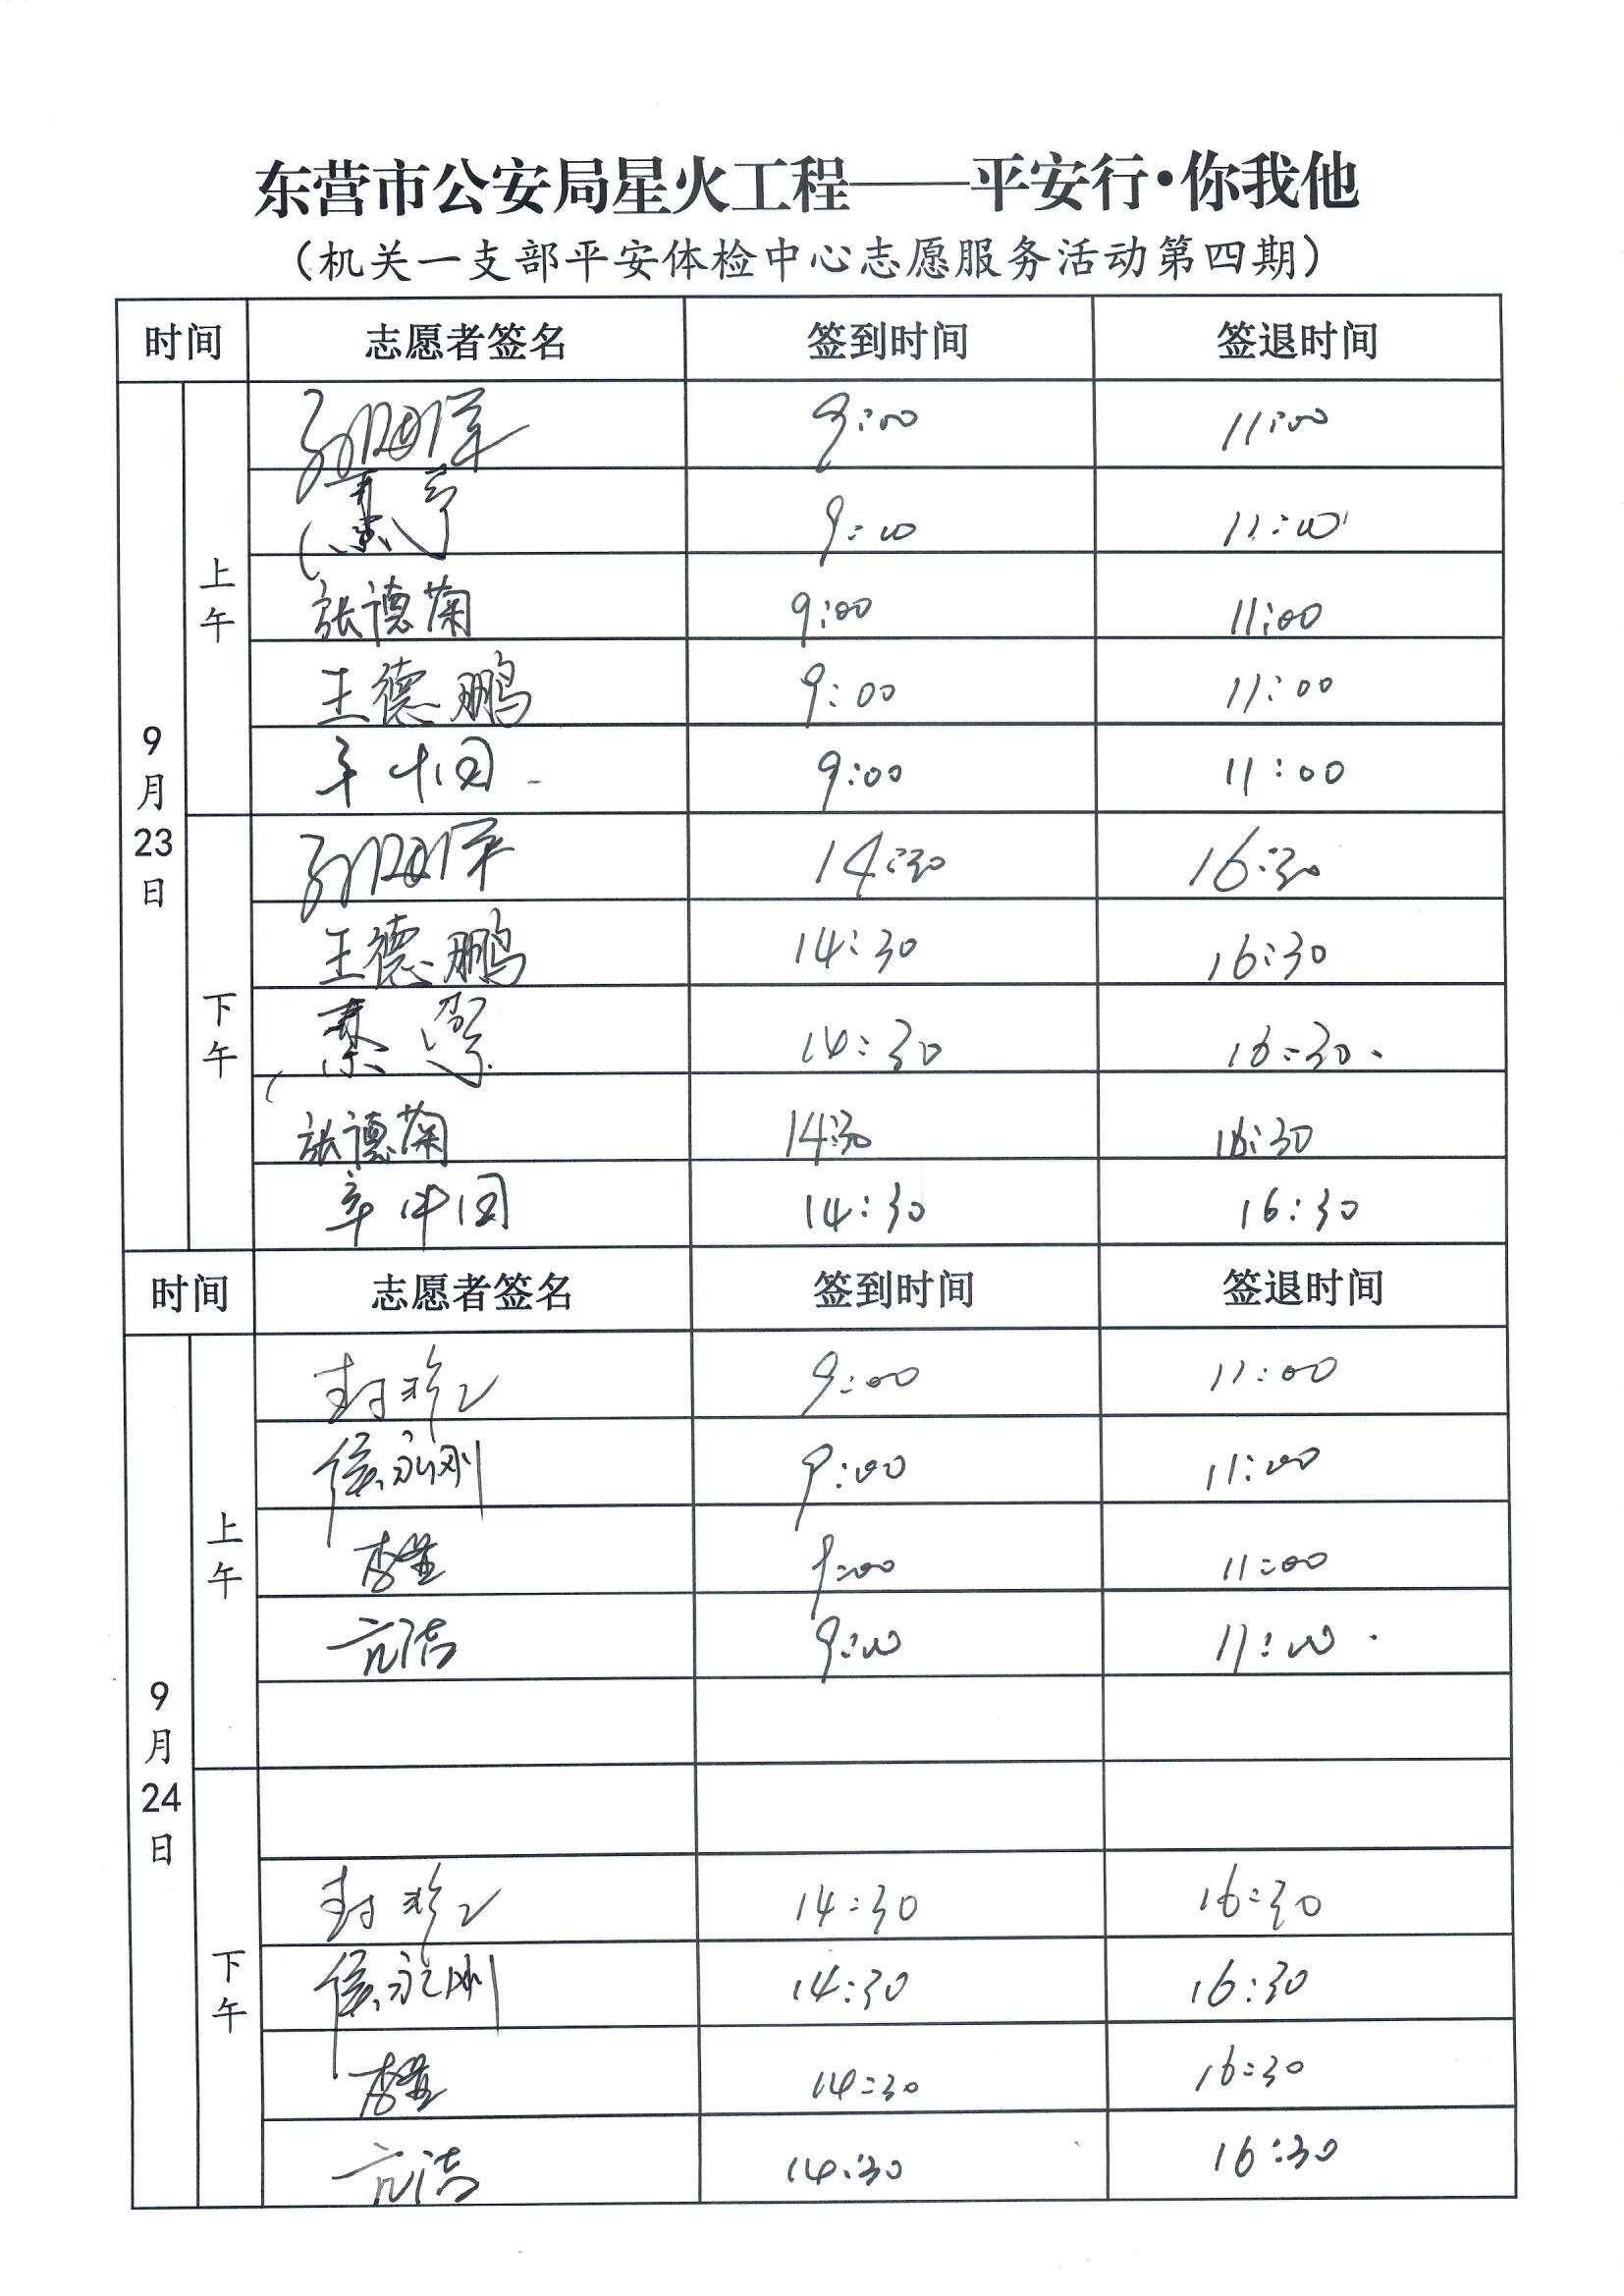 东营市公安局星火工程——平安行•你我他
（机关一支部平安体检中心志愿服务活动第四期）
时间 志愿者签名 签到时间 签退时间
9月23日
上午
9:00 11:00
9:00 11:00
张德菊 9:00 11:00
王德鹏 9:00 11:00
9:00 11:00
下午
14:30 16:30
王德鹏 14:30 16:30
14:30 16:30
张德菊 14:30 16:30
14:30 16:30
时间 志愿者签名 签到时间 签退时间
9月24日
上午
9:00 11:00
侯永刚 9:00 11:00
9:00 11:00
亓洁 9:00 11:00
下午
14:30 16:30
侯永刚 14:30 16:30
14:30 16:30
亓洁 14:30 16:30